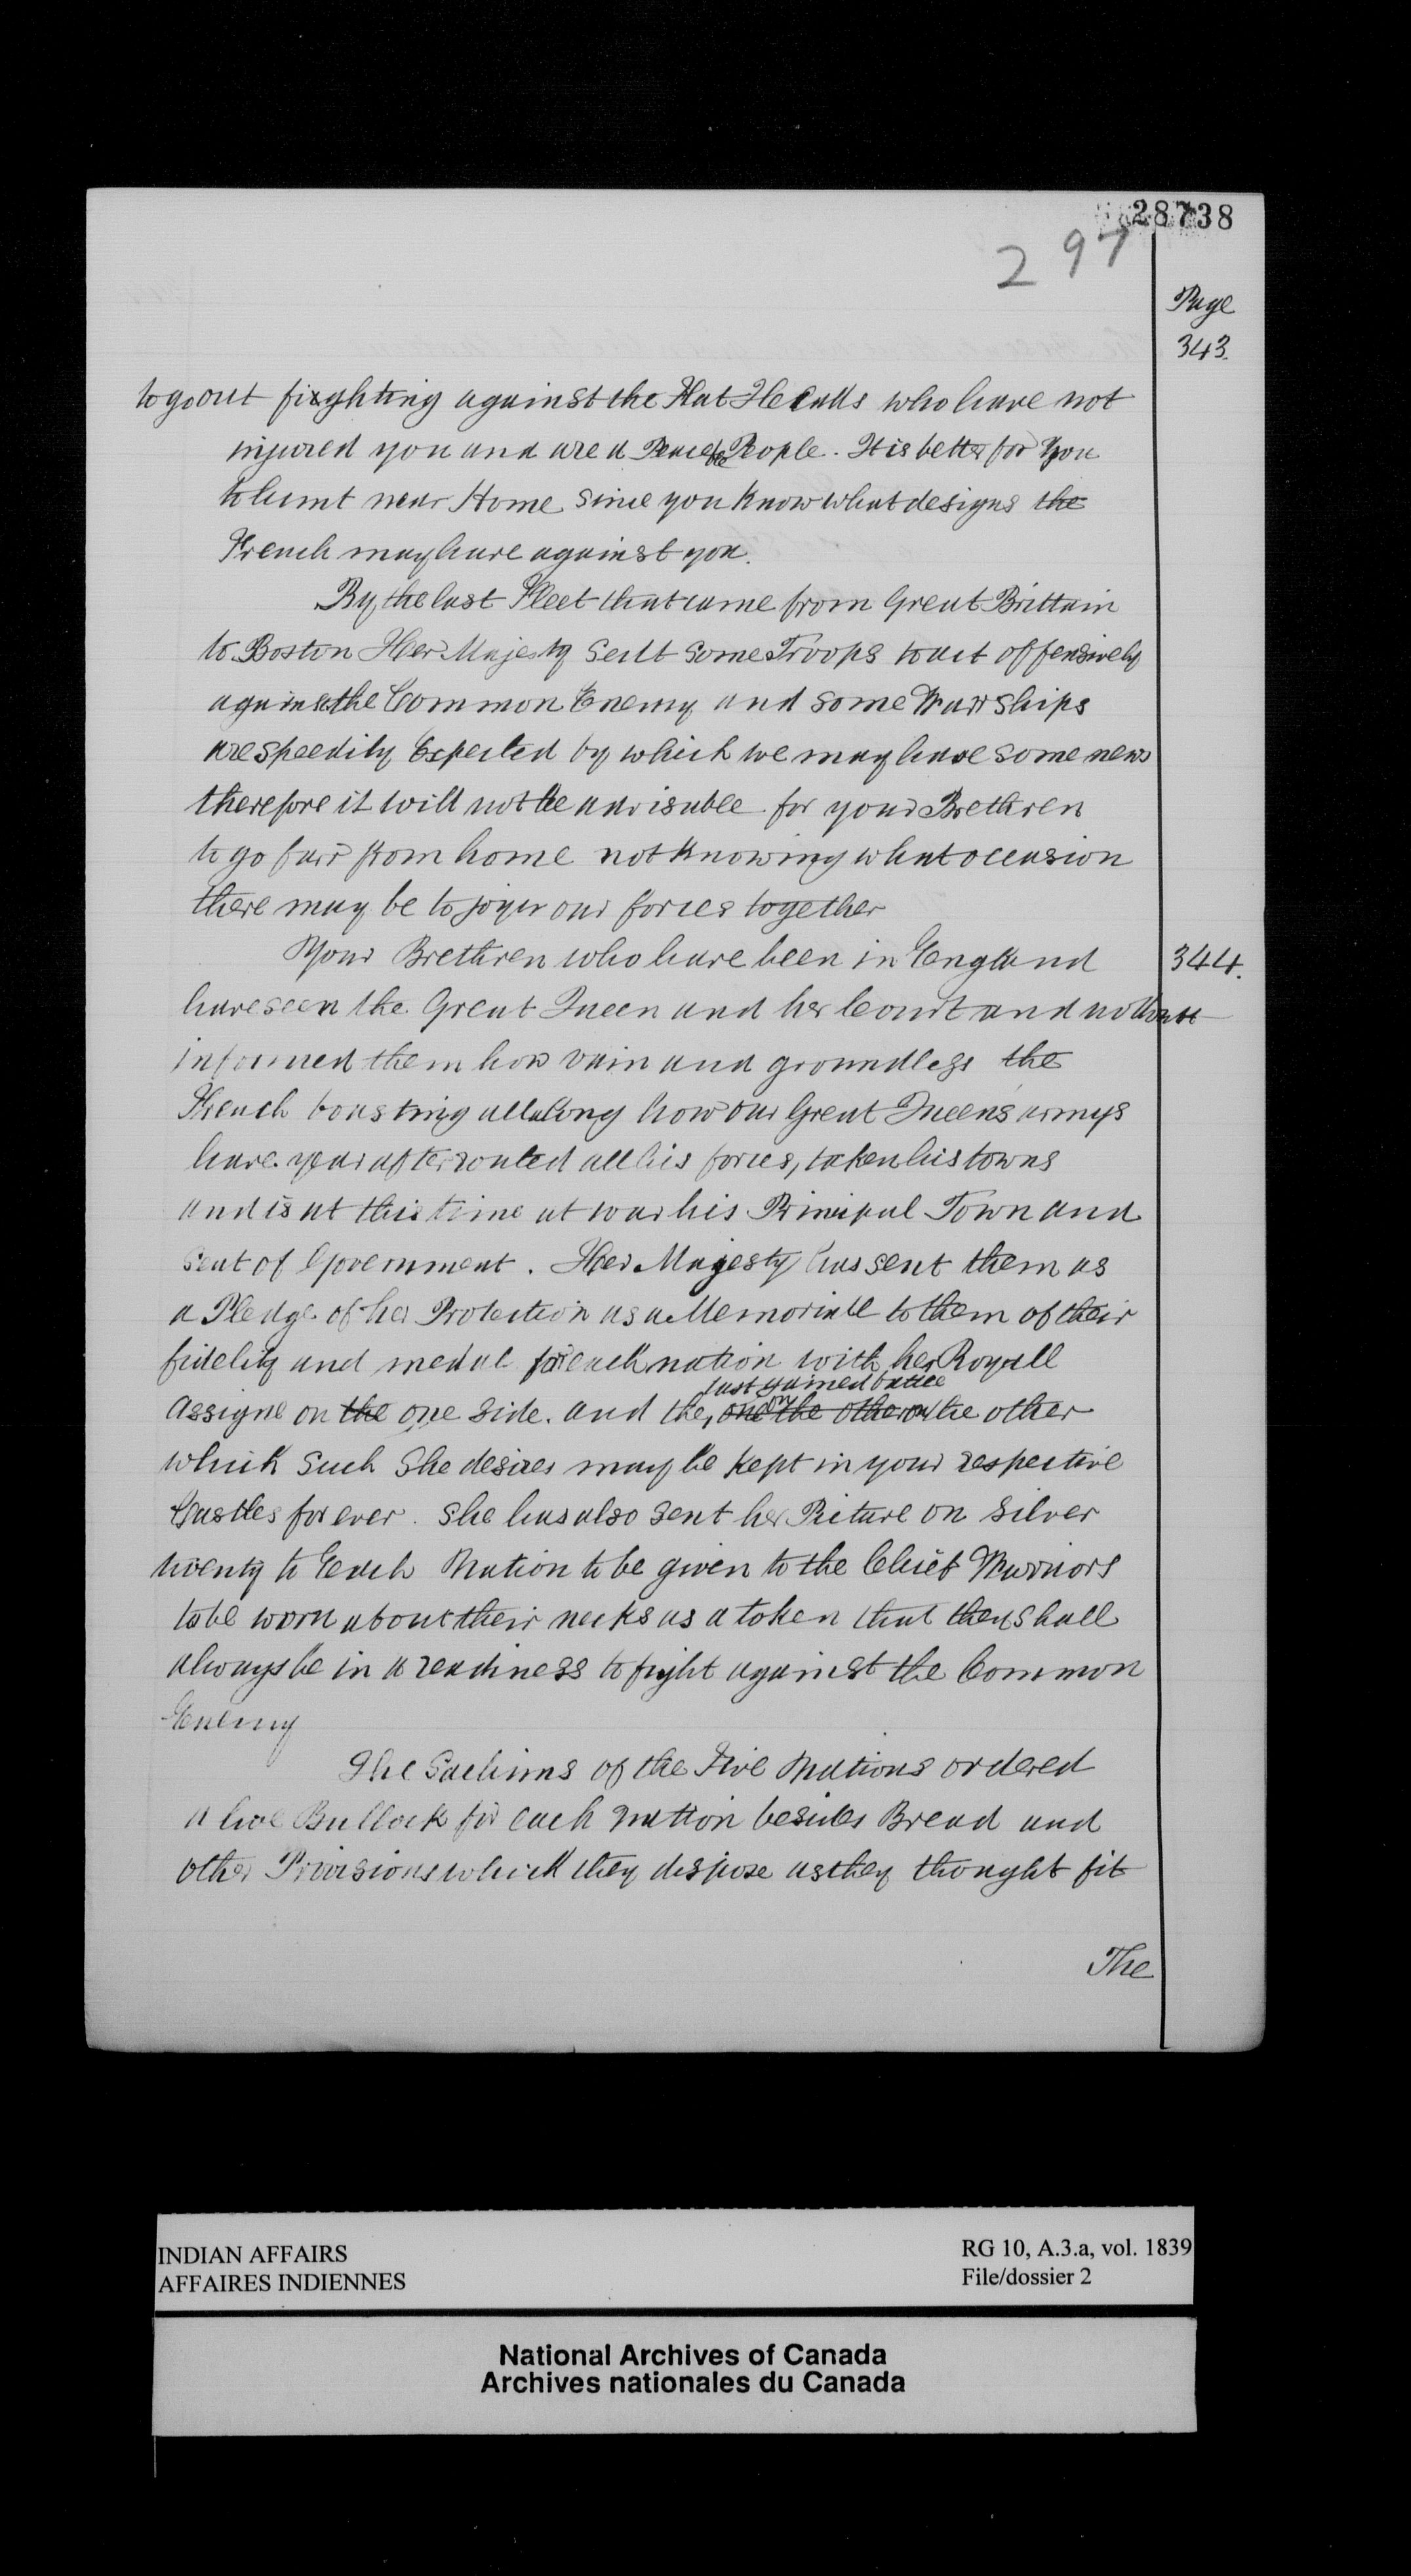 28738
297
Page
343.
to go out fixghting against the Flat Headds who have not
injured you and are a Peaceble People. It is better for you
to hunt near Home since you know what designs the
French may have against you.
By the last Fleet that came from Great Brittain
to Boston Her Majesty sent some Troops to act offensively
against the Common Enemy and some Warr ships
are speedily Expected by which we may have some news
therefore it will not be advisable for your Brethren
to go farr from home not knowing what occasion
there may be to joyn our forces together
Your Brethren who have been in England
344.
have seen the Great Queen and her Court and no doubt
informed them how vain and groundless the
French boasting all along how our Great Queens armys
have year after routed all his forces, taken his towns
and is at this time at war his Principal Town and
Seat of Government. Her Majesty has sent them as
a Pledge of her Protection as a Memoriall to them of their
fidelity and medal for each nation with her Royall
last gained batle
Assigne on the one side. and the, one on the other on the other
which such She desires may be kept in your respective
Castles for ever. She has also sent her Picture on silver
twenty to Each Nation to be given to the Chief Warriors
to be worn about their necks as a token that they shall
always be in a readiness to fight against the Common
Enemy
The Sachims of the Five Nations ordered
a live Bullock for each nation besides Bread and
other Provisions which they dispose as they thought fit
The
INDIAN AFFAIRS
AFFAIRES INDIENNES
RG 10, A.3.a, vol. 1839
File/dossier 2
National Archives of Canada
Archives nationales du Canada